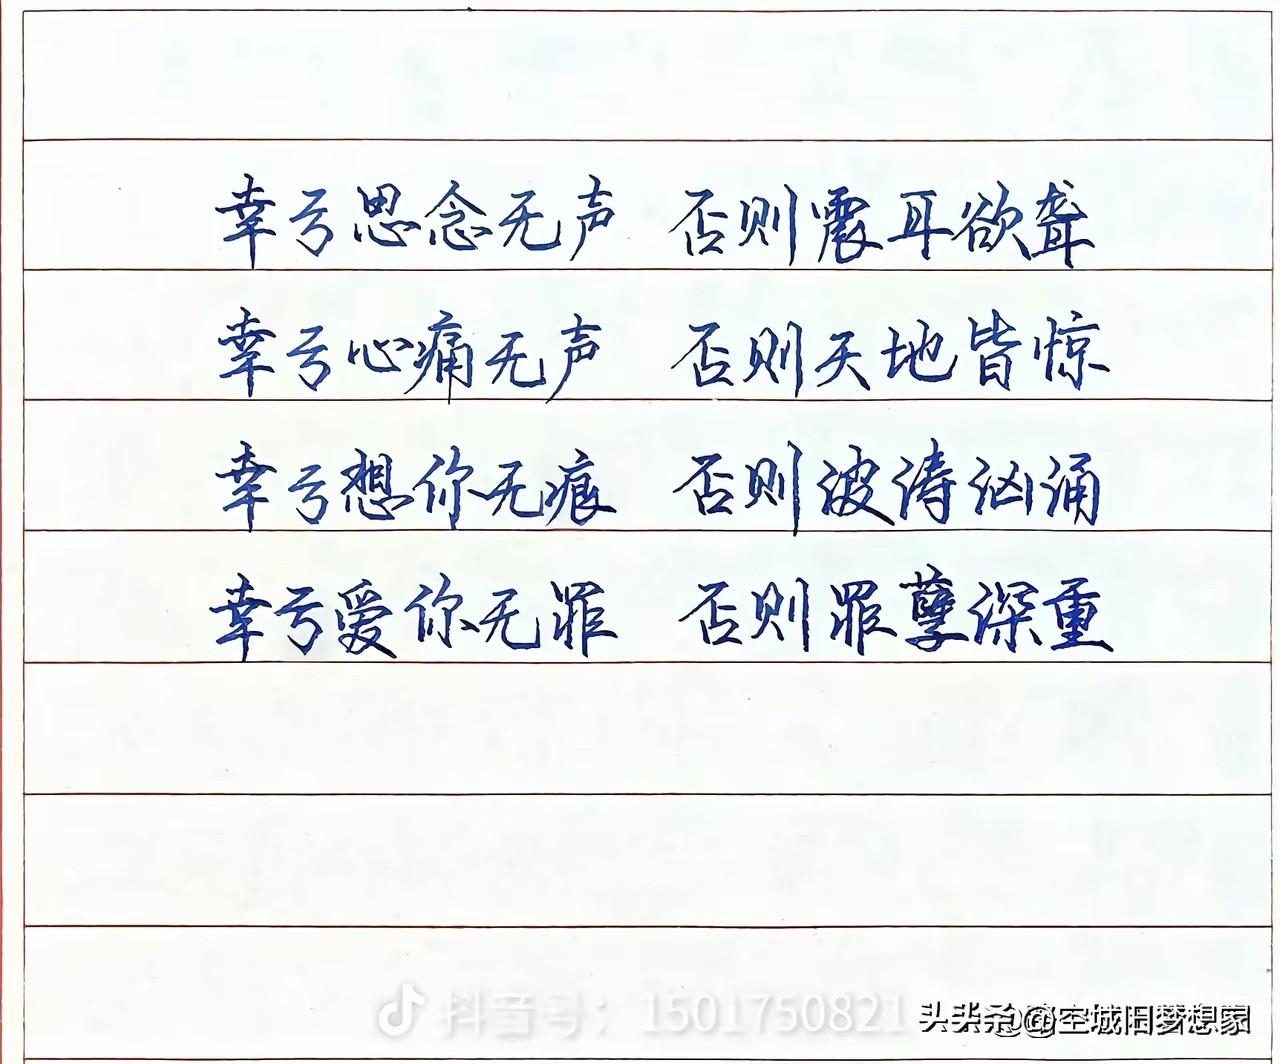 幸亏思念无声 否则震耳欲聋
幸亏心痛无声 否则天地皆惊
幸亏想你无痕 否则波涛汹涌
幸亏爱你无罪 否则罪孽深重
抖音号：1501750821
头条 @空城旧梦想家